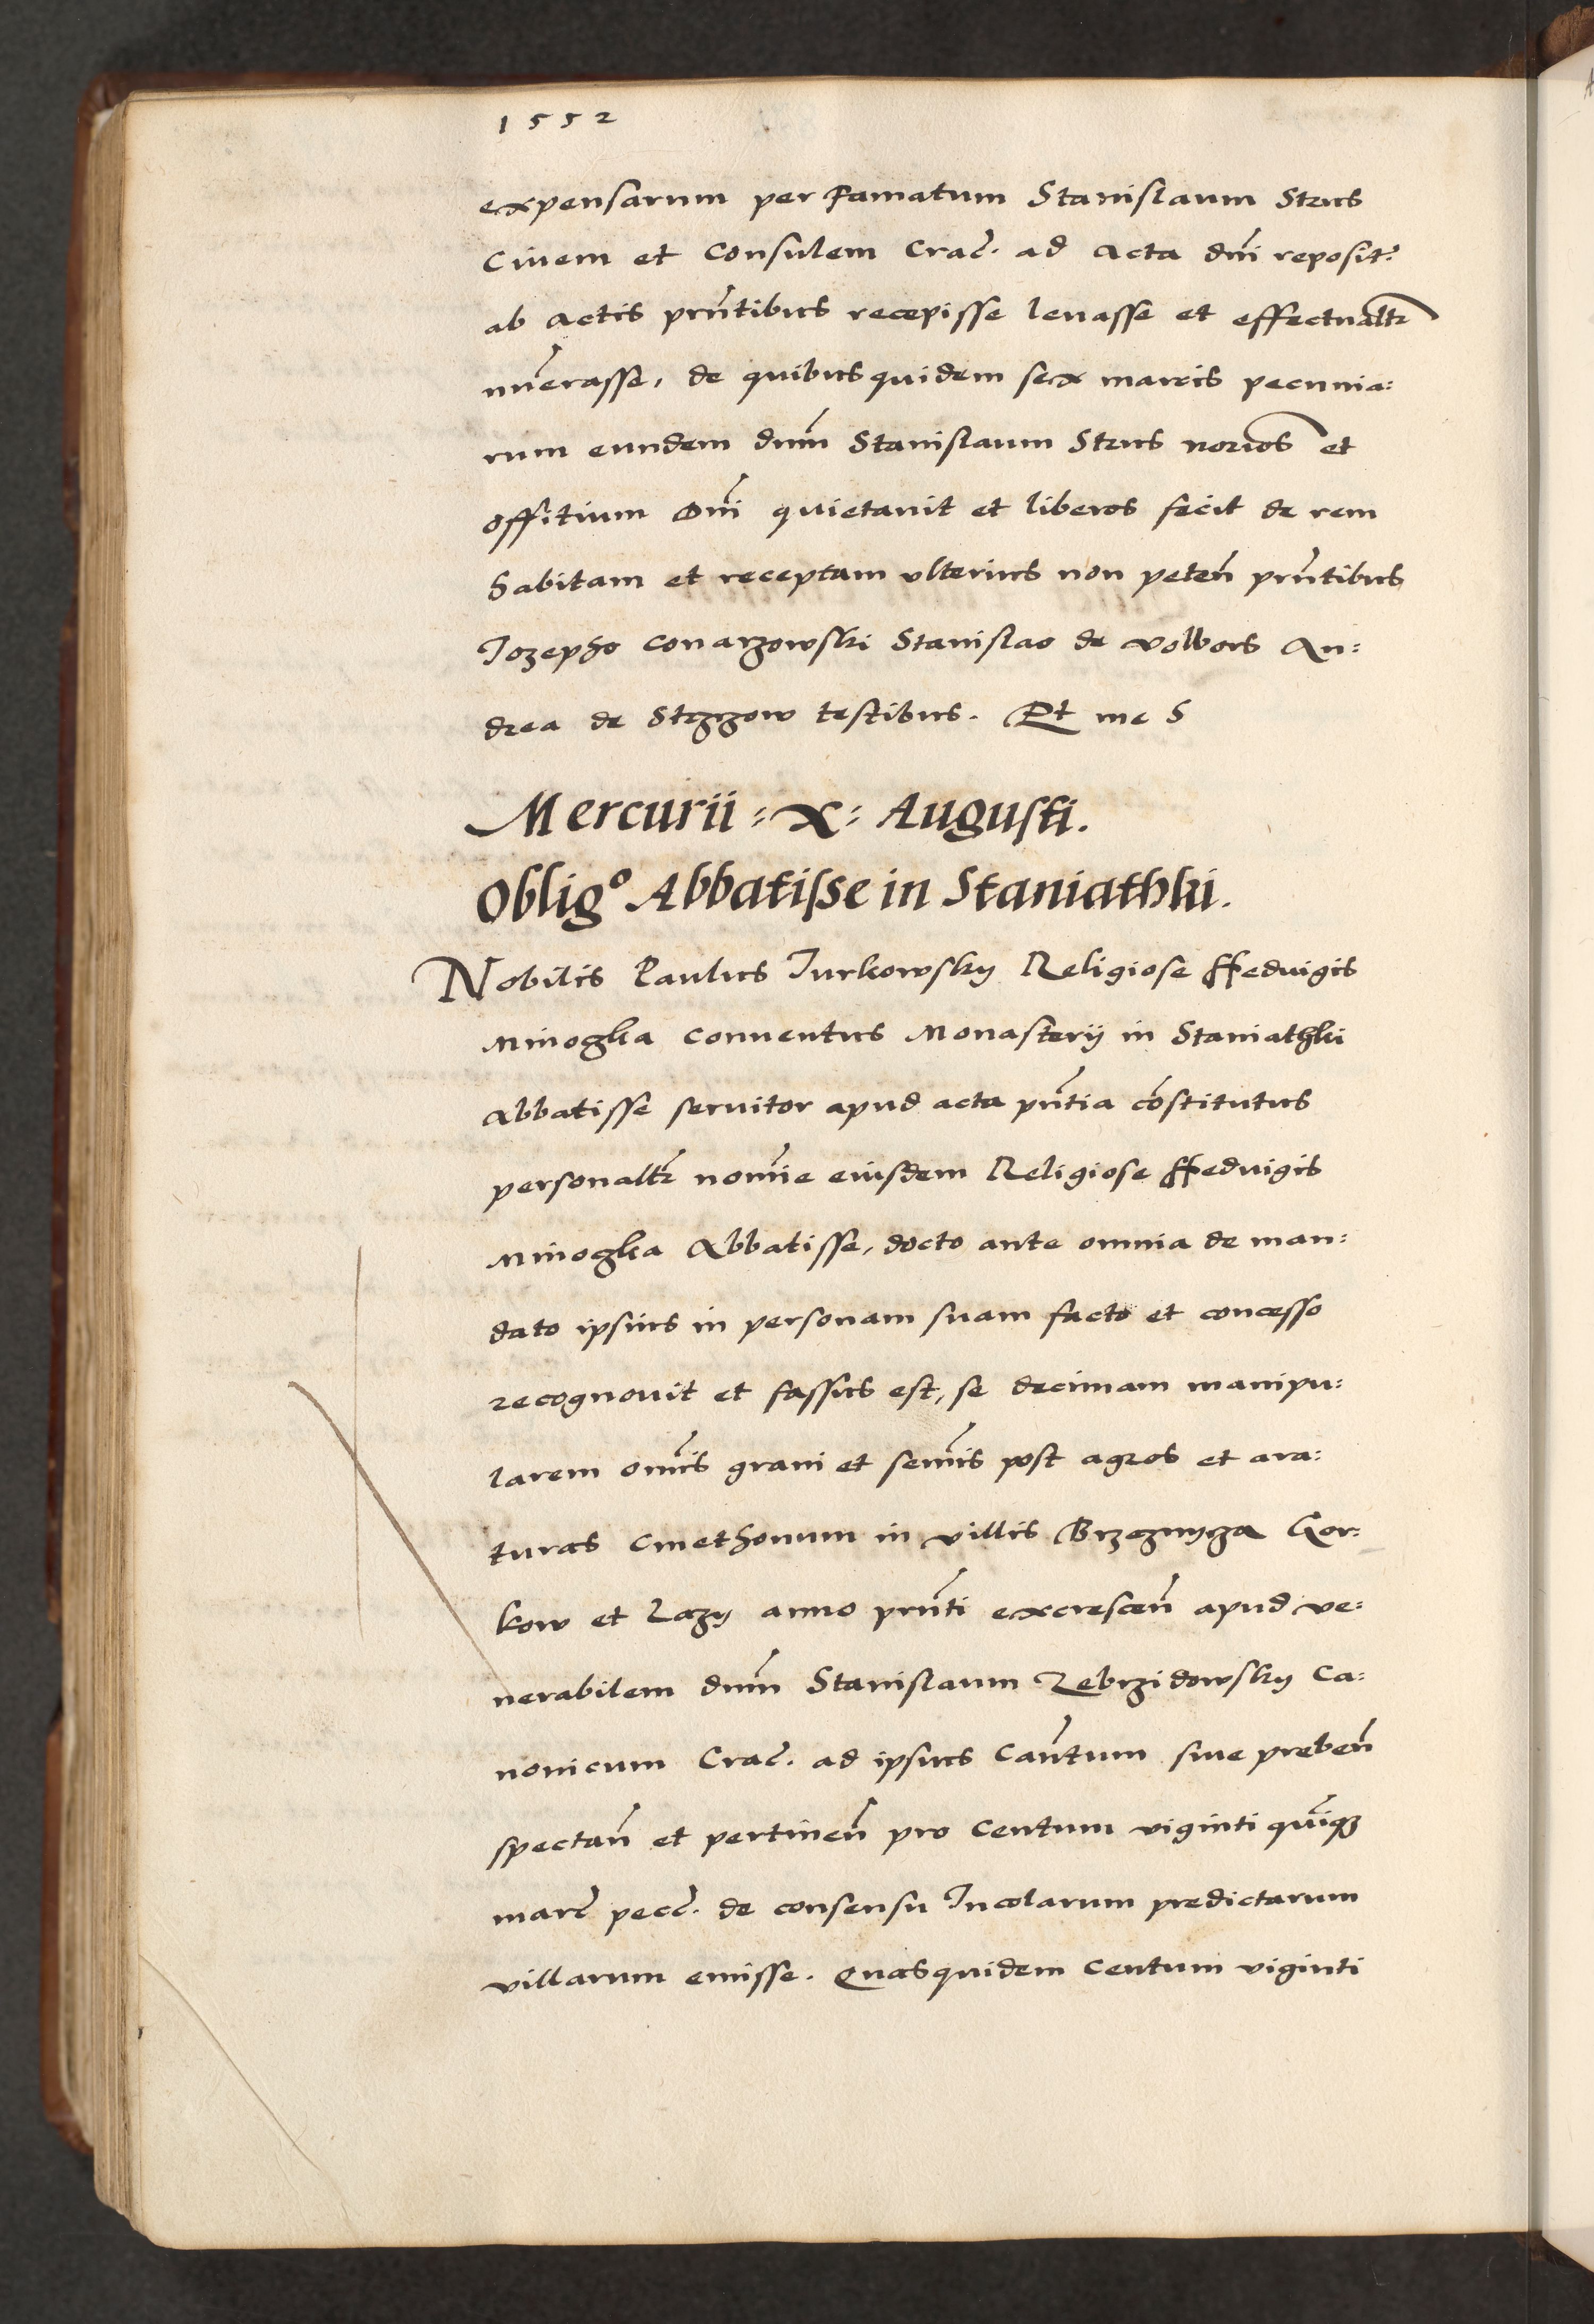 1552
expensarum per Famatum Stanislaum Strus
Civem et Consulem Crac. ad Acta dni reposit.
ab Actis pñtibus recepisse levasse et effectualtr
nuerasse, de quibus quidem sex marcis pecunia:
rum eundem dnum Stanislaum Strus notarios et
offitium Oni quietavit et liberos fecit de rem
habitam et receptam ulterius non peten pñtibus
Jozepho Conarzowski Stanislao de Wolbors An:
drea de Strzyzow testibus. Et me S
Mercurii : X : Augusti.
Obligo Abbatisse in Staniathki.
Nobilis Paulus Jurkowsky Religiose Hedvigis
Minogka Conventus Monasterij in Staniathki
Abbatisse servitor apud acta pñtia constitutus
personaltr nomie eiusdem Religiose Hedvigis
Minogka Abbatisse, docto ante omnia de man:
dato ipsius in personam suam facto et concesso
recognovit et fassus est, se decimam manipu:
larem omis grani et semis post agros et ara:
turas Cmethonum in villis Brzeznyza Gor:
kow et Lazy anno pñti excrescen apud ve:
nerabilem dnum Stanislaum Zebrzidowsky Ca:
nonicum Crac. ad ipsius Cantum sive preben
spectan et pertinen pro Centum viginti quiqz
marc pecc. de consensu Incolarum predictarum
villarum emisse. Quas quidem Centum viginti